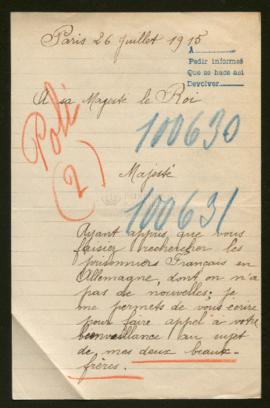 Paris 26 juillet 1915
A
Pedir informes
Que se hace así
Devolver
A sa Majesté le Roi
Poli
(2)
100630
Majesté
100631
Ayant appris que vous
faisiez rechercher les
prisonniers Français en
Allemagne, dont on n'a
pas de nouvelles; je
me permets de vous écrire
pour faire appel à votre
bienveillance au sujet
de mes deux beaux-
frères.